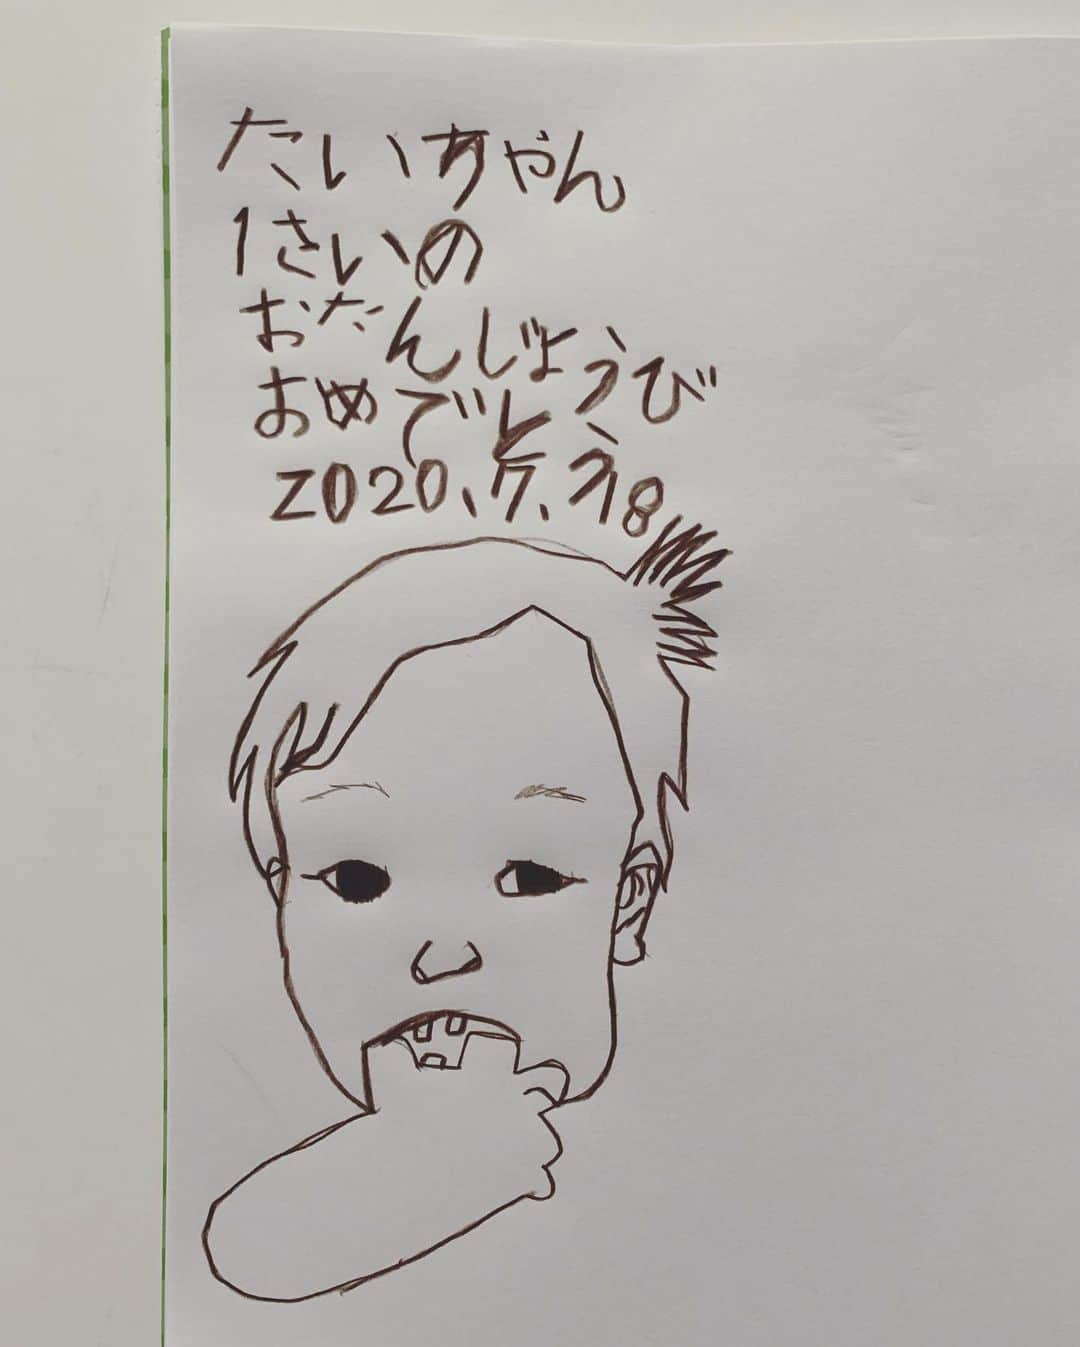 たいちゃん
1さいの
おたんじょうび
おめでとう
2020.7.18